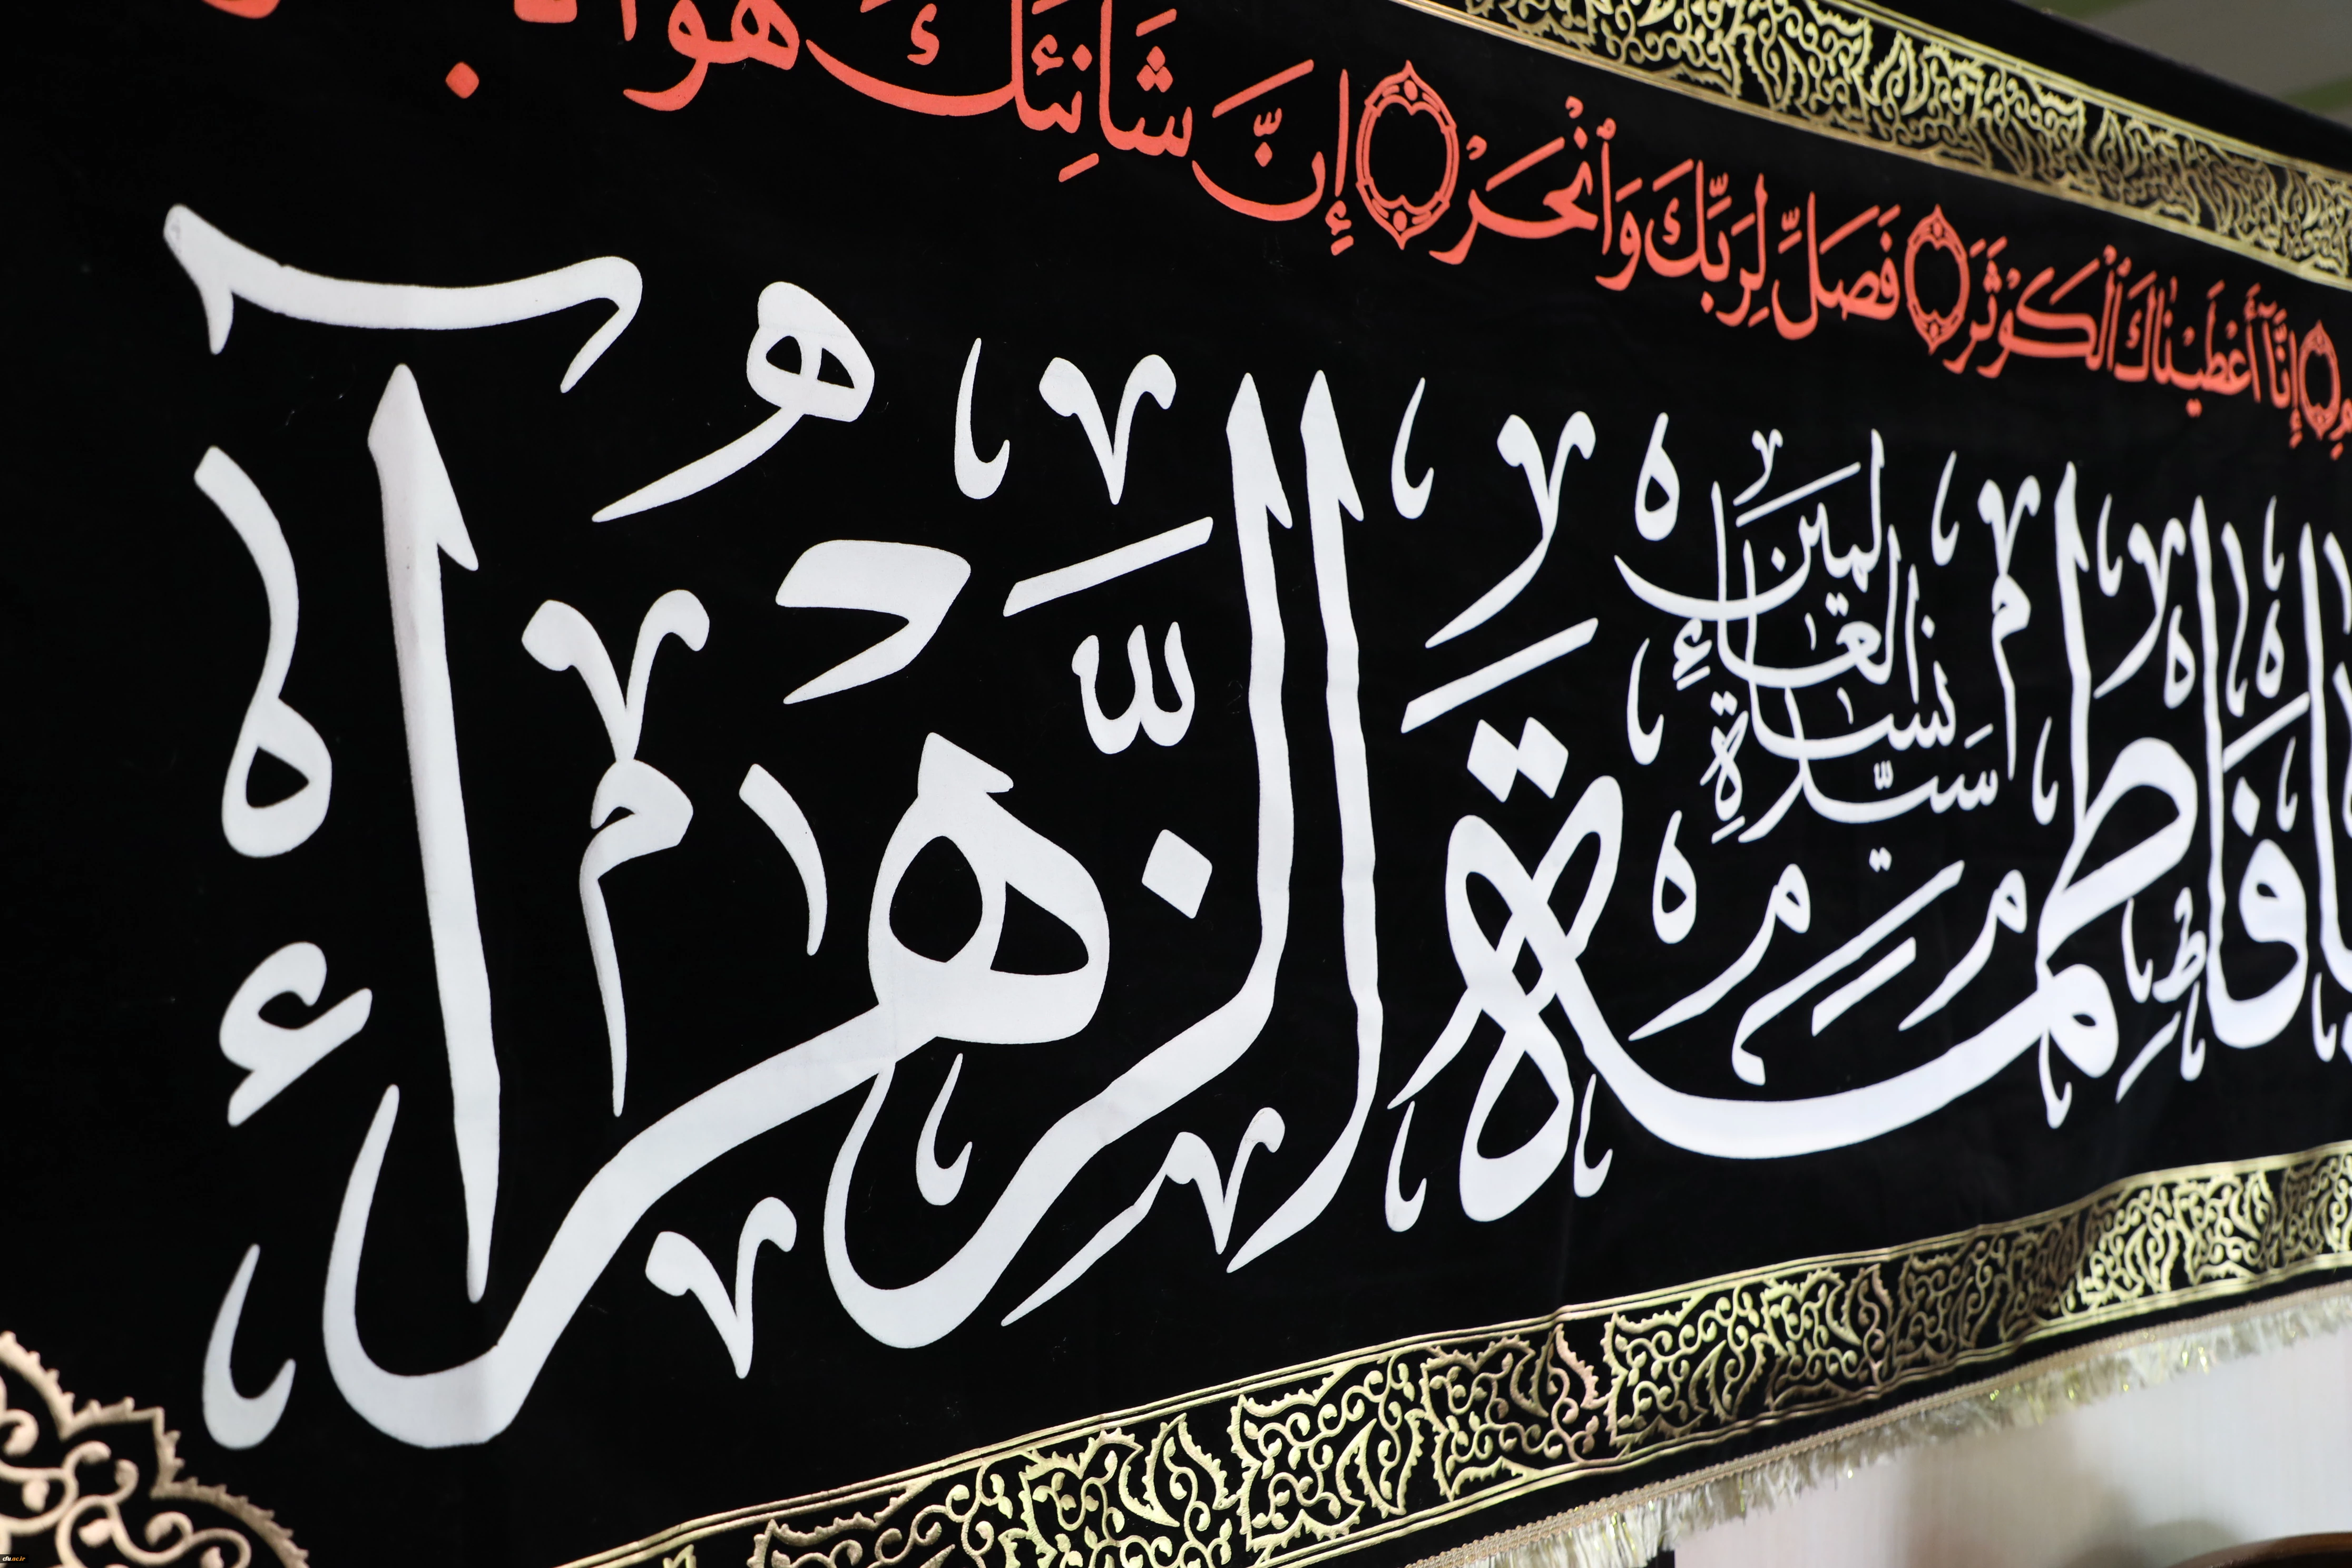 إِنَّآ أَعْطَيْنَٰكَ ٱلْكَوْثَرَ ۝ فَصَلِّ لِرَبِّكَ وَٱنْحَرْ ۝ إِنَّ شَانِئَكَ هُوَ
فَاطِمَةَ الزَّهْرَاءُ
سَيِّدَةِ نِسَاءِ الْعَالَمِينَ
cfu.ac.ir